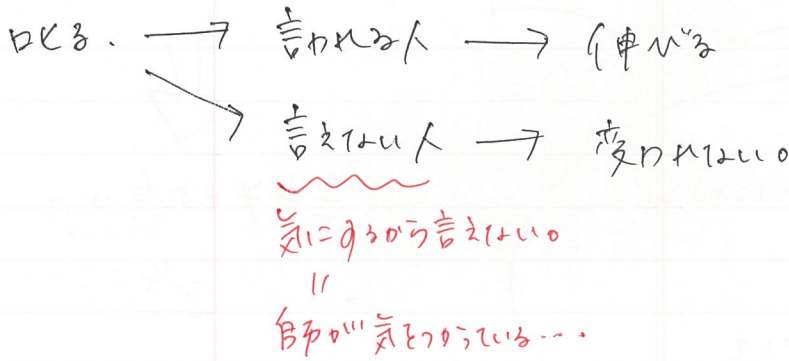 叱る. → 言われる人 → 伸びる
言えない人 → 変われない。
気にするから言えない。
〃
師が気をつかっている….